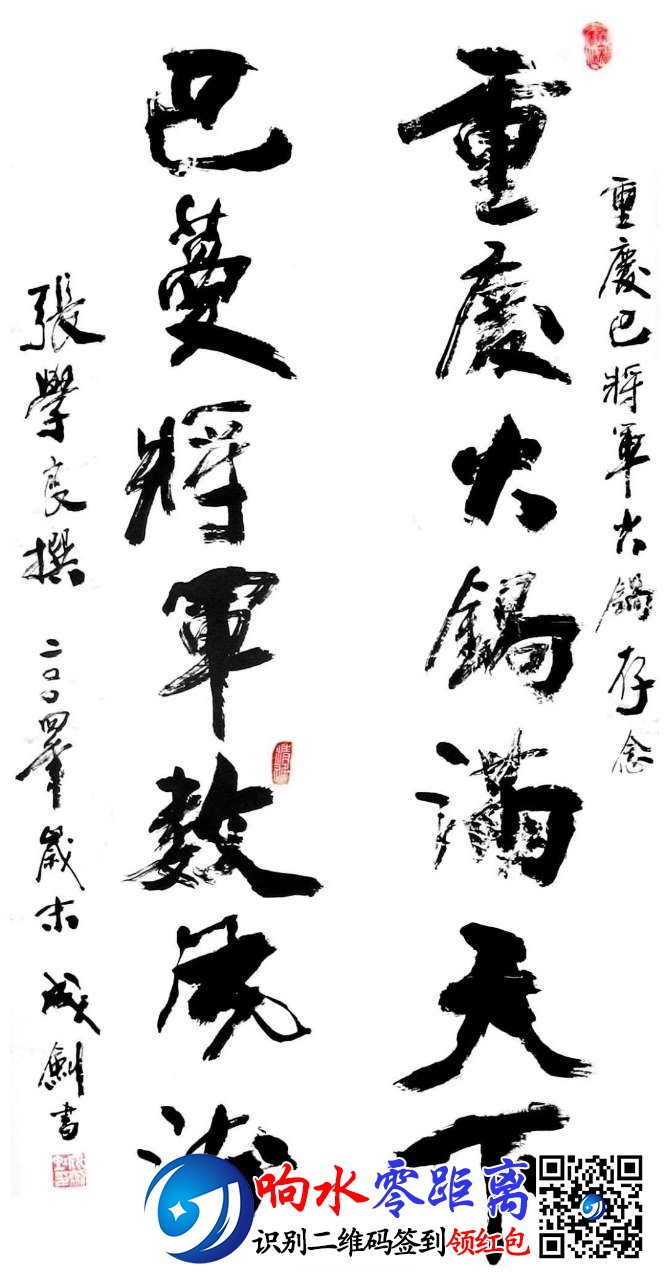 重慶巴將軍火鍋存念
重慶火鍋滿天下
巴蔓將軍數風流
張學良撰 二〇〇四年歲末 成劍書
响水零距离
识别二维码签到领红包